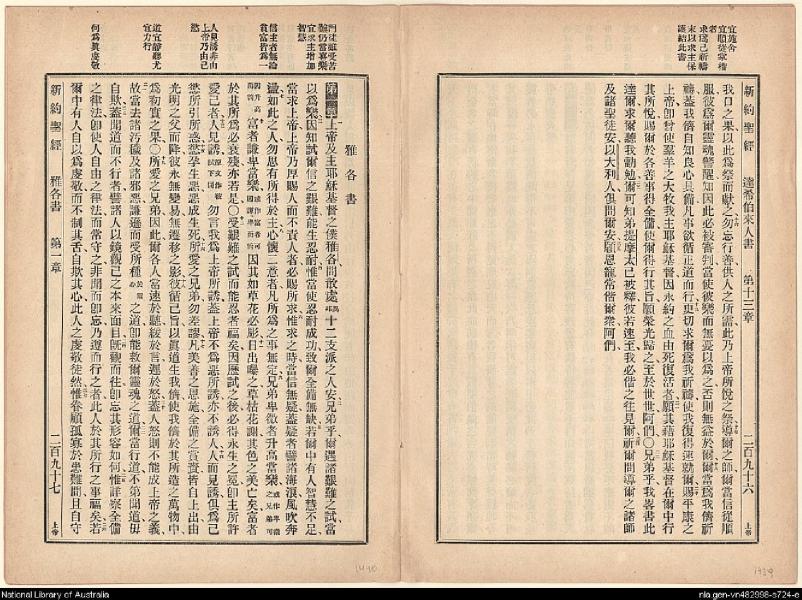 宜施舍
宜順從掌權
者
求爲己祈禱
末以求主保
護結此書
新約聖經 達希伯來人書 第十三章 二百九十六 上帝
我口之果以此爲祭而獻之勿忘行善供人之所需此乃上帝所悅之祭導爾之師爾當信從順
服彼爲爾靈魂警醒知因此必被審判當使彼樂而無憂以爲之否則無益於爾爾當爲我儕祈
禱蓋我儕自知良心具備凡事欲循正道而行更切求爾爲我祈禱使我復得速就爾賜平康之
上帝卽曾使羣羊之大牧我主耶穌基督因永約之血由死復活者願其藉耶穌基督在爾中行
其所悅賜爾於各善事得全備使爾得行其旨願榮光歸之至於世世阿們○兄弟乎我畧書此
達爾求爾聽我勸勉爾可知弟提摩太已被釋彼若速至我必偕之往見爾祈爾問導爾之諸師
及諸聖徒安以大利人俱問爾安願恩寵常偕爾衆阿們
雅各書
門徒雖受苦
難仍當喜樂
宜求主增加
智慧
信主者無論
貧富皆爲一
人見誘非由
上帝乃由己
慾
道宜靜聽尤
宜力行
何爲眞虔敬
第一章上帝及主耶穌基督之僕雅各問散處十二支派之人安兄弟乎爾遇諸艱難之試當
以爲樂因知試爾信之艱難能生忍耐惟當使忍耐成功致爾全備無缺若爾中有人智慧不足
當求上帝上帝乃厚賜人而不責人者必賜所求惟求之時當信無疑蓋疑者譬諸海浪風吹奔
盪如此之人勿思有所得於主心懷二意者凡所爲之事無定兄弟卑微者升高當樂
富者謙卑當樂因其如草花必彫日出曝之草枯花謝其色之美亡矣富者
於其所爲必衰殘亦若是○受艱難之試而能忍者福矣因歷試之後必得永生之冕卽主所許
愛己者人見誘勿言我爲上帝所誘蓋上帝不爲惡所誘亦不誘人人而見誘俱爲己
慾所引所惑慾孕生惡惡成生死所愛之兄弟勿差謬凡美善之恩施全備之賞賚皆自上出由
光明之父而降彼永無變易無遷移之影彼循己旨以眞道生我儕使我儕於其所造之萬物中
爲初實之果○所愛之兄弟因此爾各人當速於聽緩於言遲於怒蓋人怒則不能成上帝之義
故當去諸汚穢及諸邪惡謙遜而受所種之道卽能救爾靈魂之道爾當行道不第聞道毋
自欺蓋聞道而不行者譬諸人以鏡觀己之本來面目旣觀而往卽忘其形容如何惟詳察全備
之律法卽使人自由之律法而常守之非聞而卽忘乃遵而行之者此人於其所行之事福矣若
爾中有人自以爲虔敬而不制其舌自欺其心此人之虔敬徒然惟眷顧孤寡於患難間且自守
新約聖經 雅各書 第一章 二百九十七 上帝
1440
1439
National Library of Australia
nla.gen-vn482998-s724-e